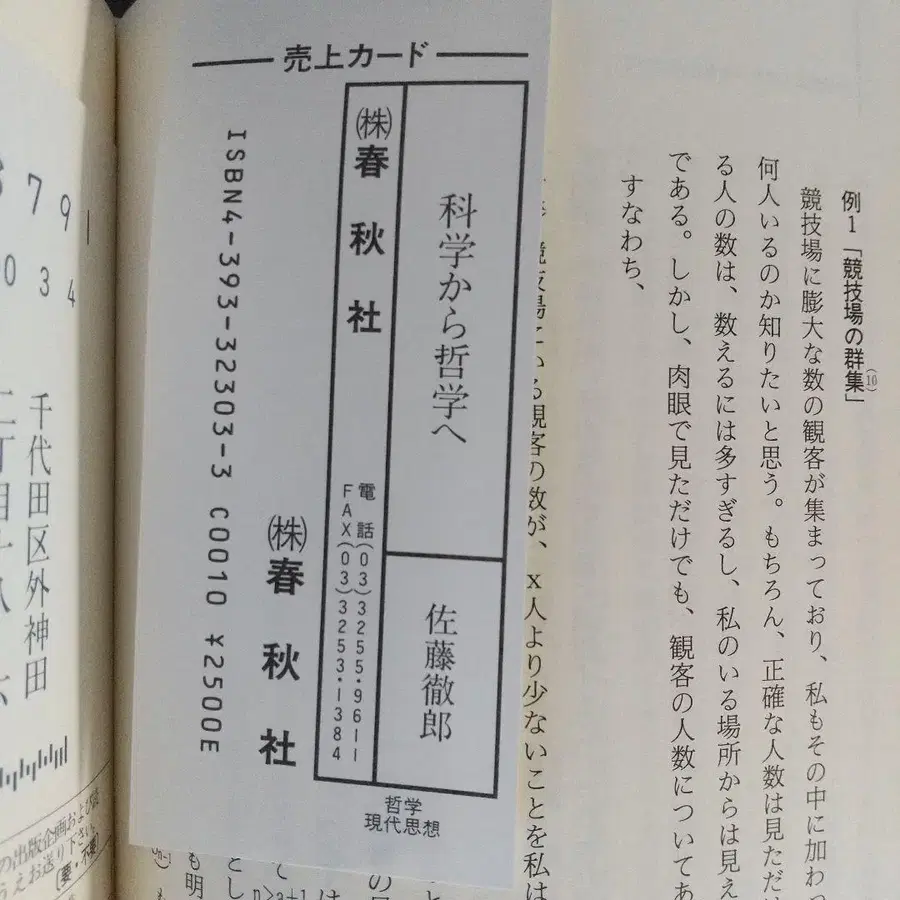 売上カード
科学から哲学へ
佐藤徹郎
㈱春秋社
電話(03)3255・9611
FAX(03)3253・1384
㈱春秋社
ISBN4-393-32303-3 C0010 ¥2500E
哲学
現代思想
例1「競技場の群集」(10)
競技場に膨大な数の観客が集まっており、私もその中に加わっ
何人いるのか知りたいと思う。もちろん、正確な人数は見ただけ
る人の数は、数えるには多すぎるし、私のいる場所からは見え
である。しかし、肉眼で見ただけでも、観客の人数についてあ
すなわち、
る観客の数が、x人より少ないことを私は
791
034
千代田区外神田
の出版企画および
うえお送り下さい。
(要・不要)